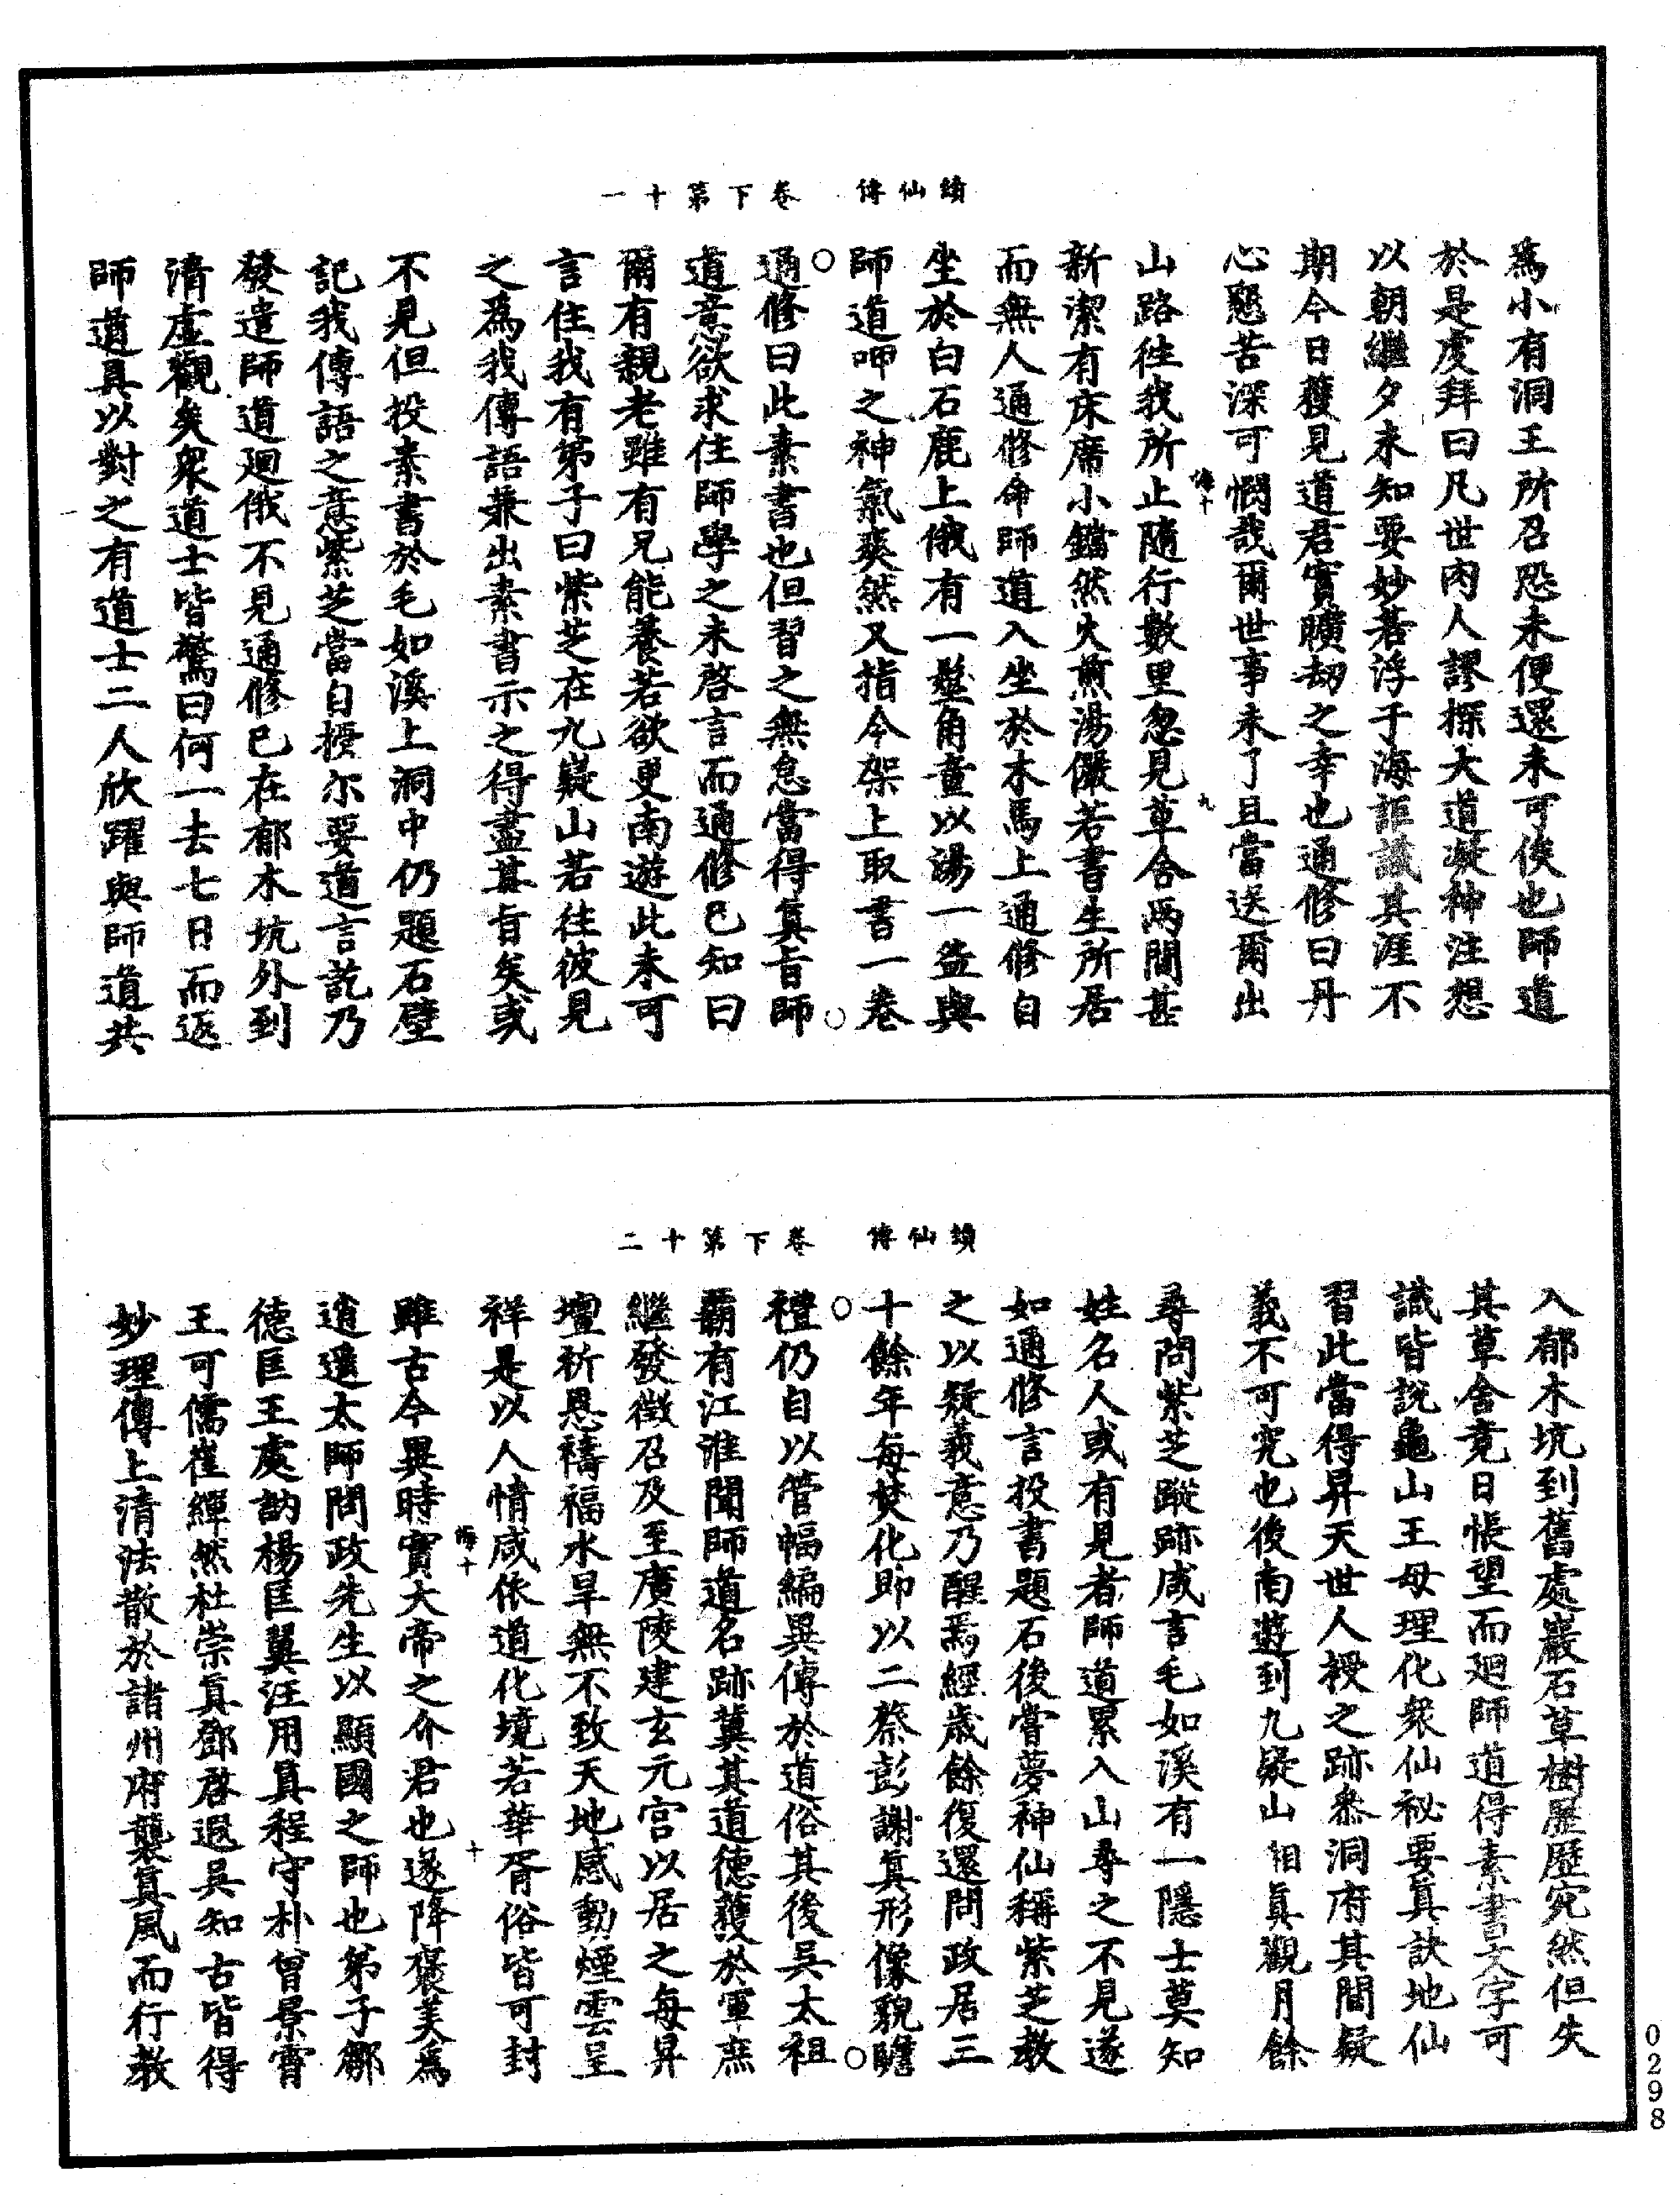 續仙傳　卷下第十一
爲小有洞王所召恐未便還未可俟也師道
於是虔拜曰凡世肉人謬探大道凝神注想
以朝繼夕未知要妙若浮于海詎識其涯不
期今日獲見道君實曠劫之幸也通修曰丹
心懇苦深可憫哉爾世事未了且當送爾出
海十　九
山路往我所止隨行數里忽見草舍兩間甚
新潔有床席小鐺然火煎湯儼若書生所居
而無人通修命師道入坐於木馬上通修自
坐於白石鹿上俄有一鬟角童以湯一盞與
師道呷之神氣爽然又指令架上取書一卷
通修曰此素書也但習之無怠當得眞旨師
道意欲求住師學之未啓言而通修已知曰
爾有親老雖有兄能養若欲更南遊此未可
言住我有弟子曰紫芝在九嶷山若往彼見
之爲我傳語兼出素書示之得盡其旨矣或
不見但投素書於毛如溪上洞中仍題石壁
記我傳語之意紫芝當自授尔要道言訖乃
發遣師道迴俄不見通修已在郁木坑外到
清虛觀矣衆道士皆驚曰何一去七日而返
師道具以對之有道士二人欣躍與師道共
續仙傳　卷下第十二
入郁木坑到舊處巖石草樹歷歷宛然但失
其草舍竟日悵望而迴師道得素書文字可
識皆說龜山王母理化衆仙祕要眞訣地仙
習此當得昇天世人授之跡叅洞府其間疑
義不可究也後南遊到九疑山 眞觀月餘
尋問紫芝蹤跡咸言毛如溪有一隱士莫知
姓名人或有見者師道累入山尋之不見遂
如通修言投書題石後嘗夢神仙稱紫芝教
之以疑義意乃醒焉經歲餘復還問政居三
十餘年每焚化即以二蔡彭謝眞形像貌瞻
禮仍自以管幅編異傳於道俗其後吳太祖
霸有江淮聞師道名跡冀其道德護於軍庶
繼發徵召及至廣陵建玄元宮以居之每昇
壇祈恩禱福水旱無不致天地感動煙雲呈
祥是以人情咸依道化境若華胥俗皆可封
海十　十
雖古今異時實大帝之介君也遂降褒美爲
逍遙太師問政先生以顯國之師也弟子鄒
德匡王處訥楊匡翼汪用眞程守朴曾景霄
王可儒崔繟然杜崇眞鄧啓遐吳知古皆得
妙理傳上清法散於諸州府襲眞風而行教
0298